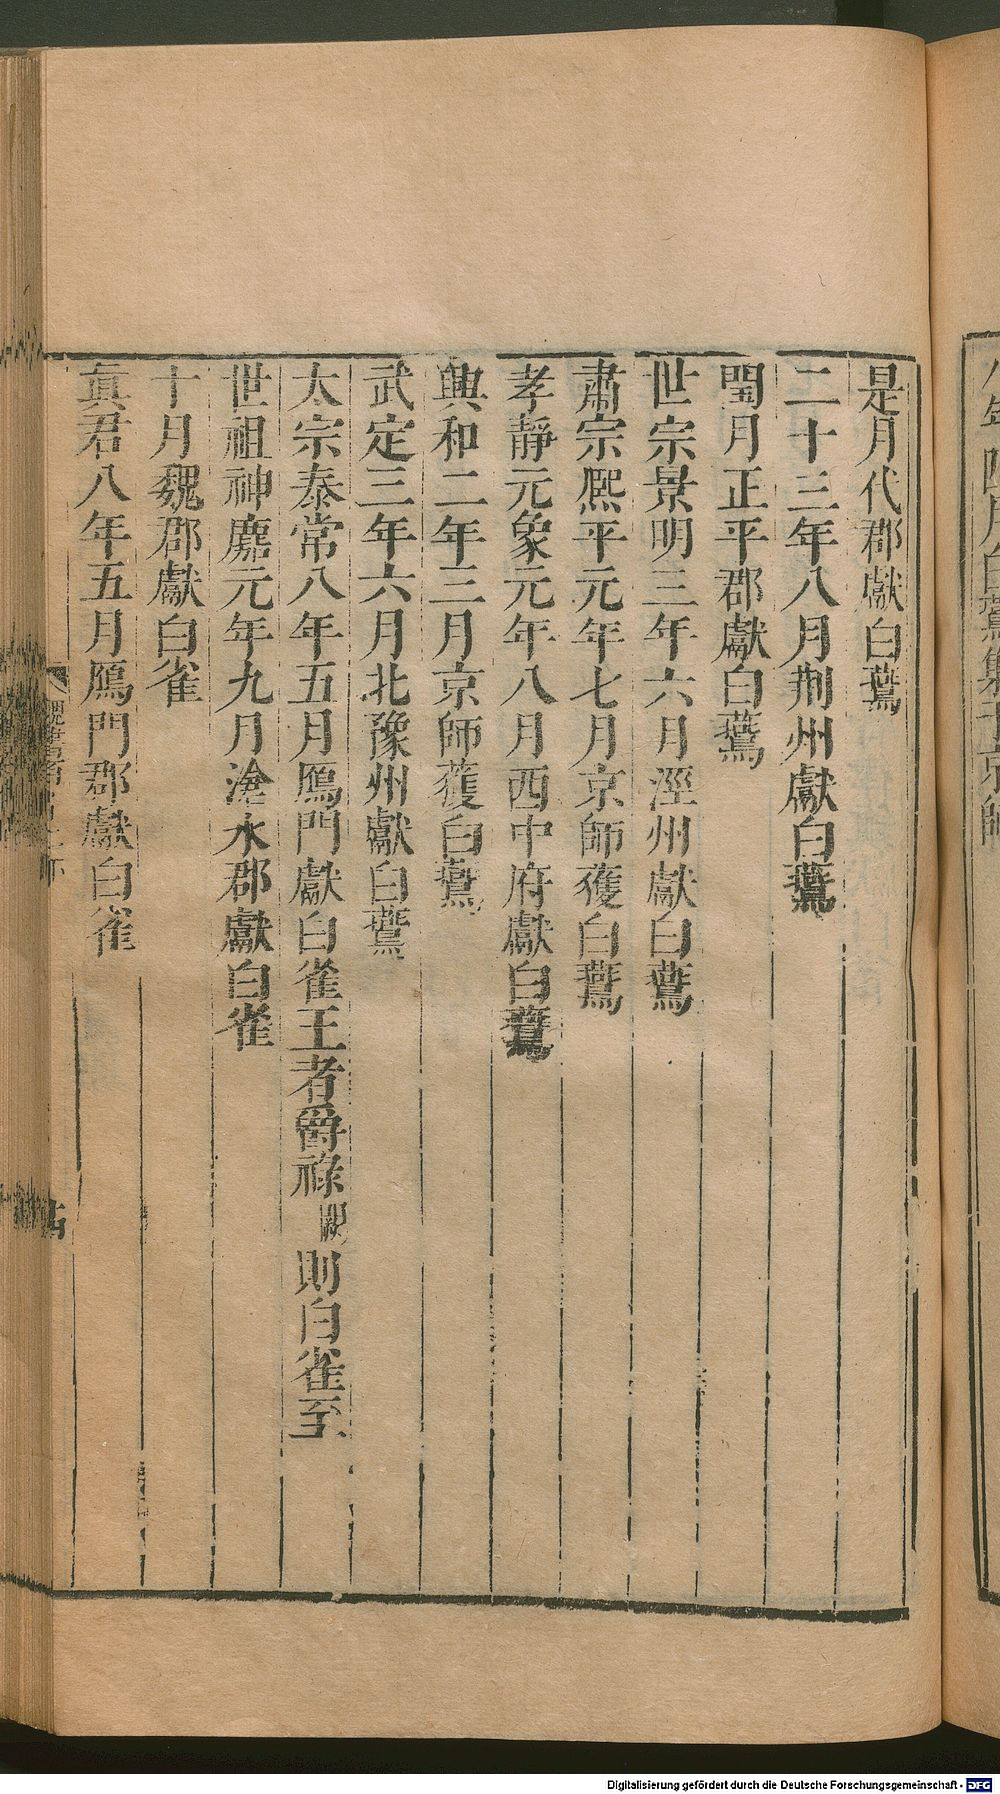 是月代郡獻白鷰
二十三年八月荆州獻白鷰
閏月正平郡獻白鷰
世宗景明三年六月涇州獻白鷰
肅宗熙平元年七月京師獲白鷰
孝靜元象元年八月西中府獻白鷰
興和二年三月京師獲白鷰
武定三年六月北豫州獻白鷰
太宗泰常八年五月鴈門獻白雀王者爵祿闕則白雀至
世祖神䴥元年九月滄水郡獻白雀
十月魏郡獻白雀
眞君八年五月鴈門郡獻白雀
Digitalisierung gefördert durch die Deutsche Forschungsgemeinschaft - DFG